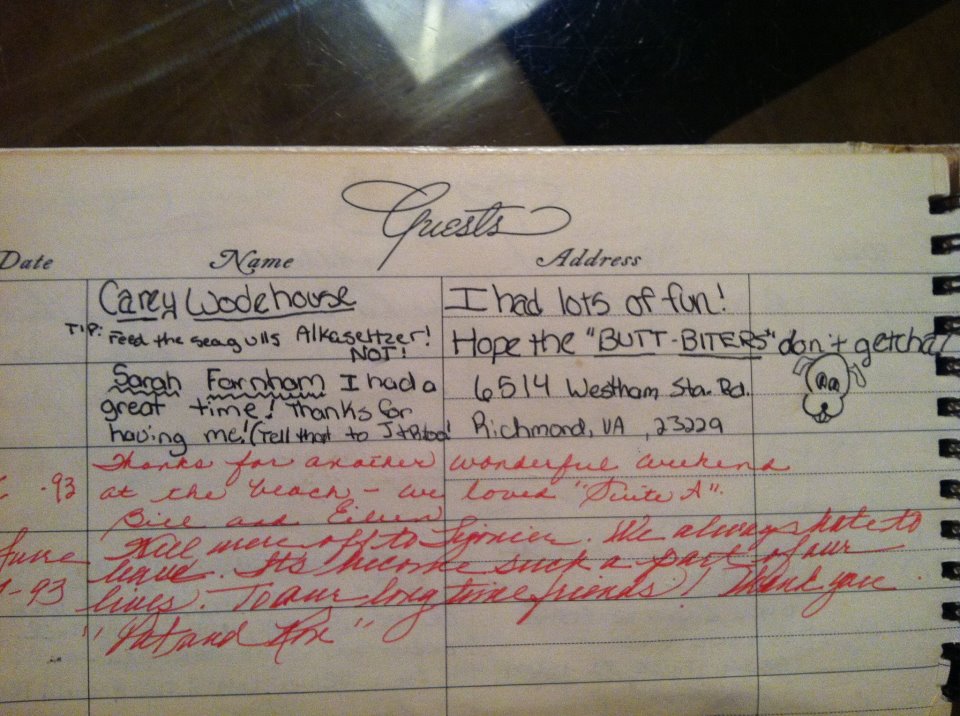 Guests
Date Name Address
Carey Wodehouse I had lots of fun!
TIP: Feed the seagulls Alkaseltzer! Hope the "BUTT-BITERS" don't getcha!
NOT!
Sarah Farnham I had a 6514 Westham Sta. Rd.
great time! Thanks for
having me! (Tell that to J + Richmond, VA, 23229
Thanks for another wonderful weekend
-93 at the beach - we loved "Suite A".
Bill and Eileen
June more off to Ligonier. We always hate to
leave. Its become such a part of our
-93 lives. To our long time friends! Thank you
"Pat and